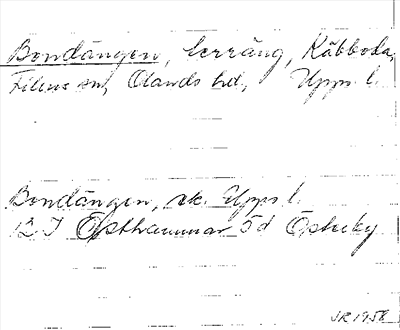 Bondängen, terräng, Käbboda,
Films sn, Olands hd, Upps. l.
Bondängen, ek. Upps l.
12 I Östhammar 5 d Österby
JR 1958